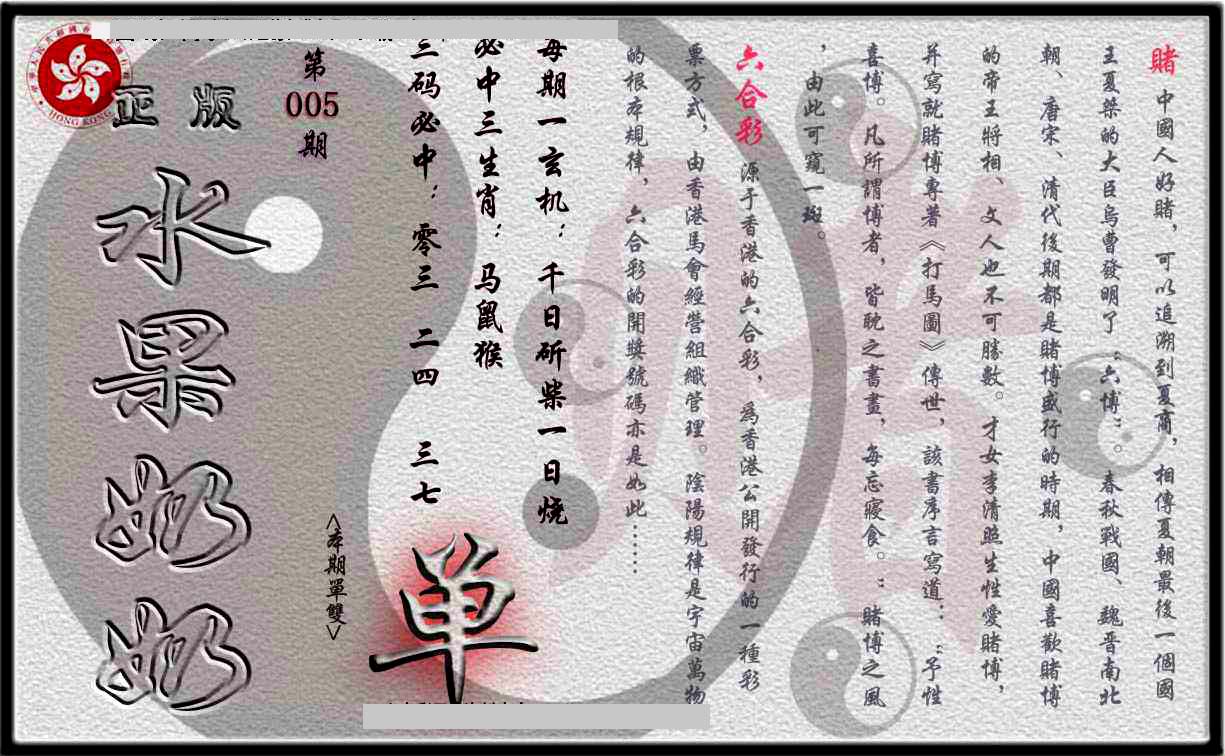 賭 中國人好賭，可以追溯到夏商，相傳夏朝最後一個國
王夏桀的大臣烏曹發明了“六博”。春秋戰國、魏晉南北
朝、唐宋、清代後期都是賭博盛行的時期，中國喜歡賭博
的帝王將相、文人也不可勝數。才女李清照生性愛賭博，
并寫就賭博專著《打馬圖》傳世，該書序言寫道：“予性
喜博。凡所謂博者，皆耽之晝晝，每忘寢食。“賭博之風
，由此可窺一斑。
六合彩 源于香港的六合彩，為香港公開發行的一種彩
票方式，由香港馬會經營組織管理。陰陽規律是宇宙萬物
的根本規律，六合彩的開獎號碼亦是如此……
每期一玄机：千日斫柴一日烧
必中三生肖：马鼠猴
三码必中：零三 二四 三七
单
<本期單雙>
第
005
期
正版
水果奶奶
HONG KONG